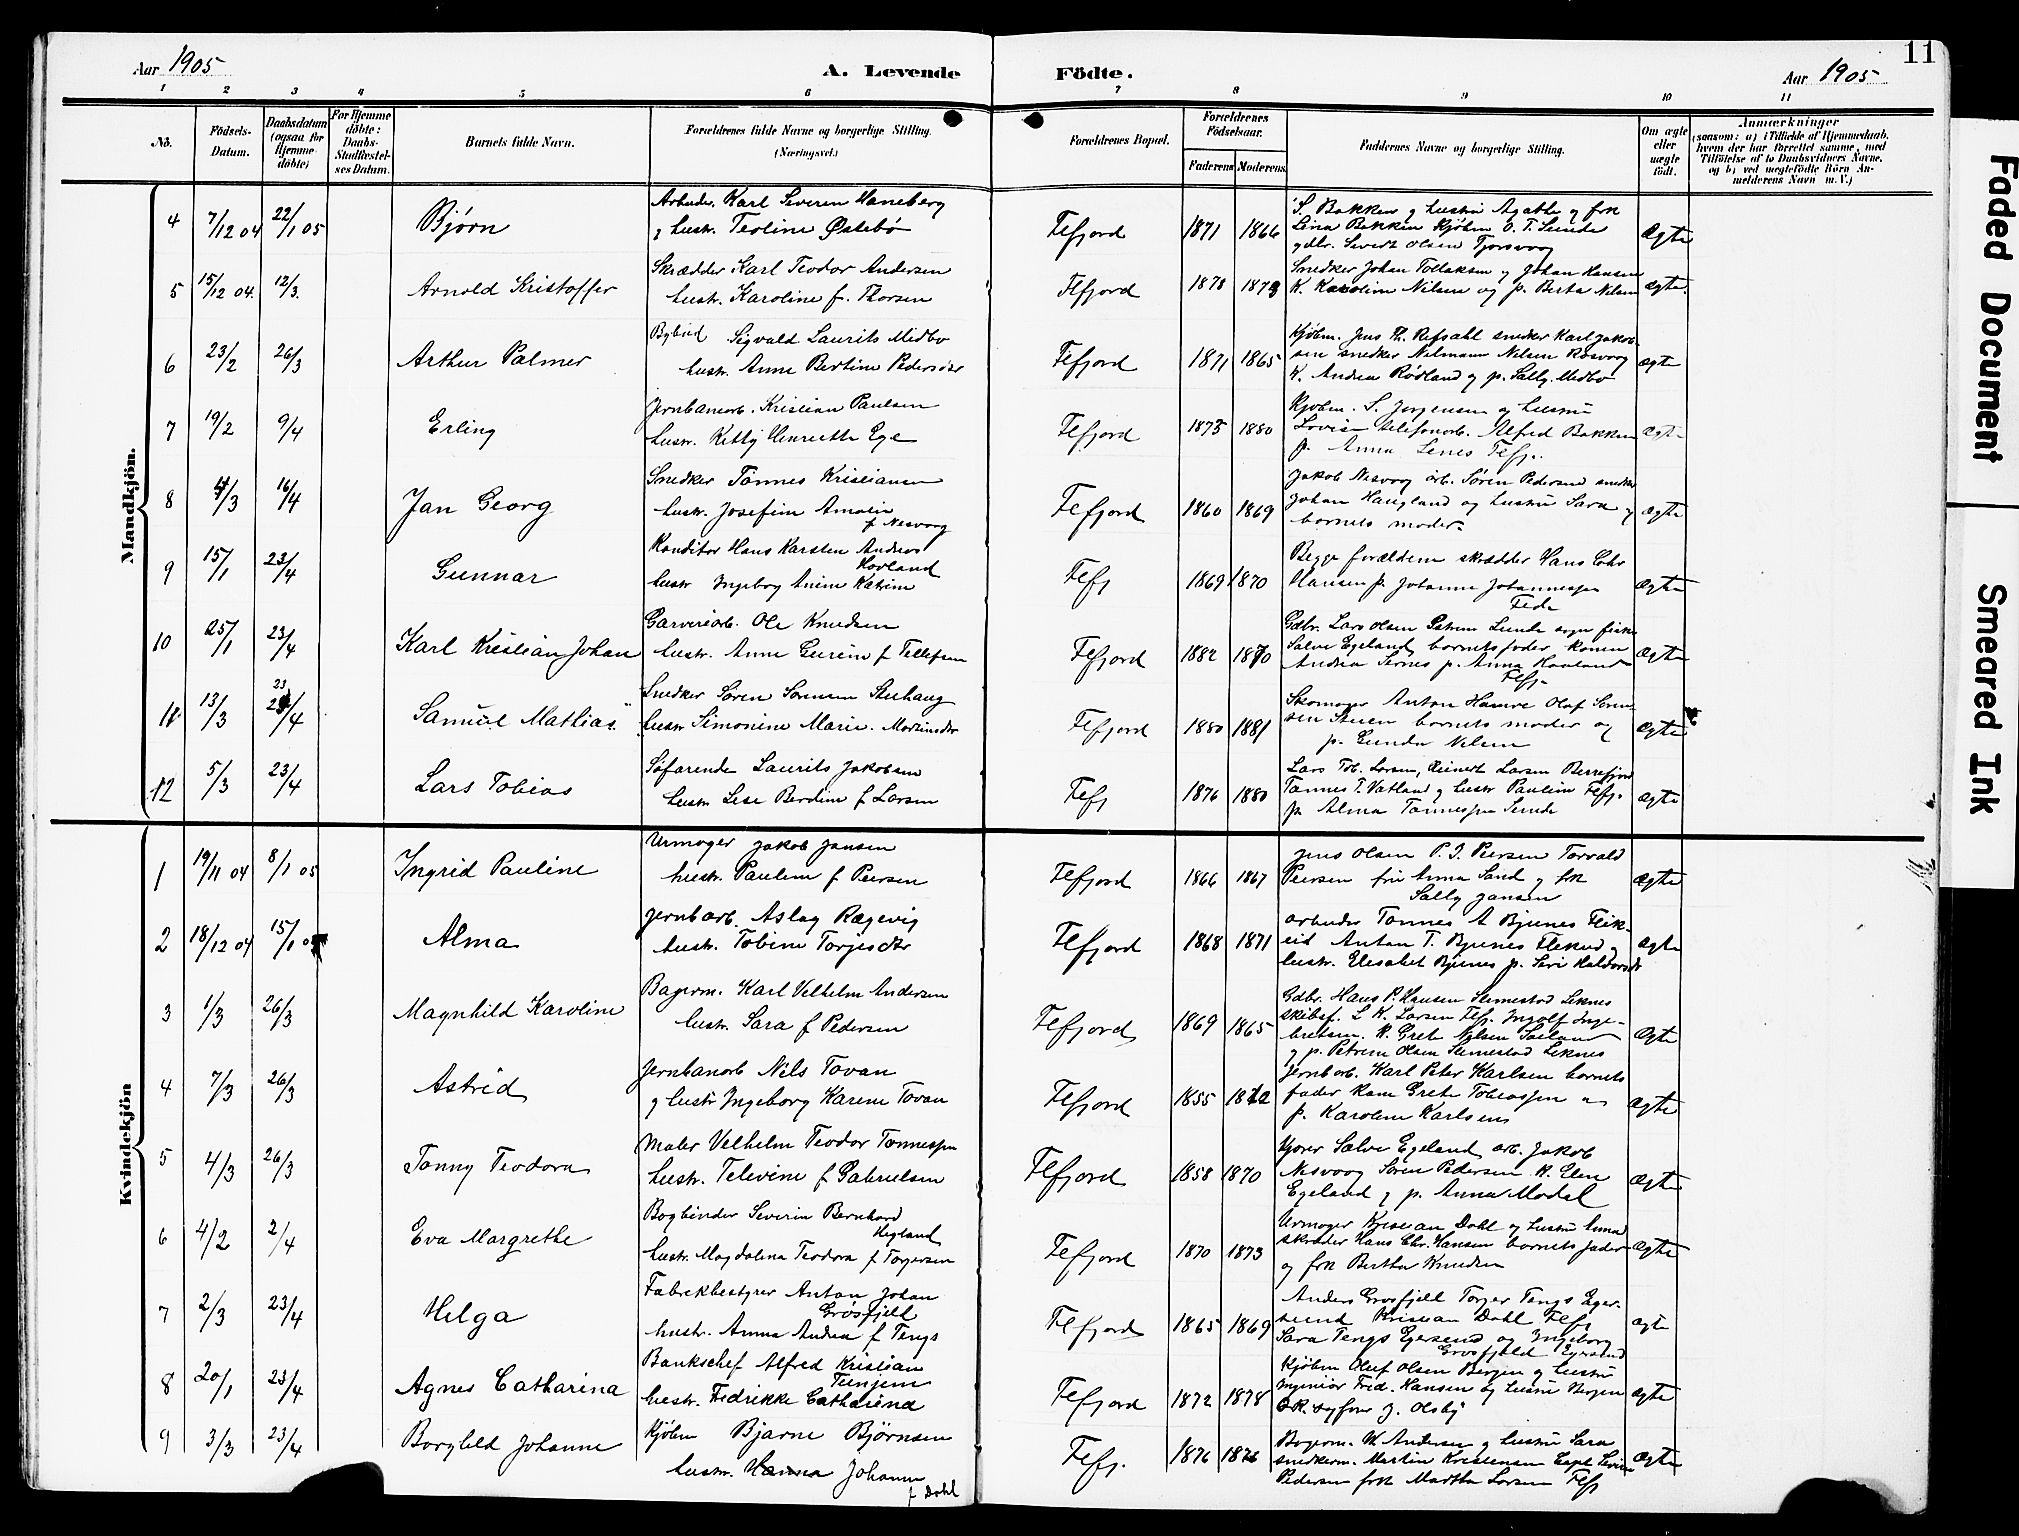 11
Aar 1905
A. Levende
Födte.
Aar 1905
1 2 3 4 5 6 7 8 9 10 11
No.
Födsels-
Datum.
Daabsdatum
(ogsaa for
Hjemme-
döbte)
For Hjemme
döbte:
Daabs-
Stadfæstel-
ses Datum.
Barnets fulde Navn.
Forældrenes fulde Navne og borgerlige Stilling.
(Næringsvei.)
Forældrenes Bopæl.
Forældrenes
Födselsaar.
Faderens Moderens
Faddernes Navne og borgerlige Stilling.
Om ægte
eller
uægte
födt.
Anmærkninger
(saasom: a) i Tilfælde af Hjemmedaab,
hvem der har forrettet samme, med
Tilföielse af to Daabsvidners Navne,
og b) ved uægtefödte Börn An-
melderens Navn m. V.)
Mandkjön.
4 7/12 04 22/1 05 Bjørn
Arbeider Karl Severin Haneberg
g hustr. Teoline Østebø
Flefjord 1871 1866
S. Bakken g hustru Agathe g frk
Lina Bakken Kjøbm O. T. Lunde
gdbr. Sivert Olsen
Ægte
5 15/12 04. 12/3. Arnold Kristoffer
Skrædder Karl Teodor Andersen
hustr. Karoline f. Thorsen
Flefjord 1878 1873
Snedker Johan Tollaksen g Johan Hansen
K. Karoline Nilsen og p. Berta Nilsen
Ægte.
6 23/2 26/3 Arthur Palmer
Bybud Sigvald Laurits Medbø
hustr. Anne Bertine Pedersdtr
Flefjord 1871 1865
Kjøbm. Jens Th. Refsahl snedker Karl Jakob-
sen snedker Nilmann Nilsen Røsvoog
K. Andrea Rødland g p. Sally Medbø
ægte
7 19/2 9/4 Erling
Jernbanearb. Kristian Paulsen
hustr. Kitty Henriette Ege
Flefjord 1875 1880
Kjøbm. S. Jørgensen g hustru
Lovise telefonarb. Alfred Bakken
p. Anna Lenes Flefj.
Ægte
8 4/3 16/4 Jan Georg
Snedker Tønnes Kristiansen
hustr. Josefine Amalie
f Nesvoog
Flefjord 1860 1869
Jakob Nesvoog arb. Søren Pedersen snedker
Johan Haugland og hustru Sara g
barnets moder
Ægte
9 15/1 23/4 Gunnar
Konditor Hans Karsten Andreas
Hovland
hustr Ingeborg Anine Katrine
Flefj 1869 1870
Begge forældrene skrædder Hans Chr
Hansen p. Johanne Johannessen
Fede
Ægte
10 25/1 23/4 Karl Kristian Johan
Garveriarb. Ole Knudsen
hustr. Anne Gurine f Tellefsen
Flefjord 1882 1870
Gdbr. Lars Olsen Lunde sogn
Salve Egeland barnets fader konen
Andrea p. Anna
Flefj.
Ægte
11 13/3 23/4 Samuel Mathias
Snedker Søren Sørensen Stuhaug
hustr Simonine Marie Martinsdtr
Flefjord 1880 1881
Skomager Anton Hamre Olaf Søren-
sen barnets moder og
p. Gunda Nilsen
Ægte
12 5/3 23/4 Lars Tobias
Søfarende Laurits Jakobsen
hustr Lise Berdine f Larsen
Flefj 1876 1880
Lars Tob. Larsen, Reinert Larsen Berrefjord
Tønnes T. Vatland g hustr Pauline Flefj.
p. Alma Tønnessen Lunde
Ægte
Kvindekjön
1 19/11 04 8/1 05 Ingrid Pauline
Urmager Jakob Jansen
hustr. Pauline f Peersen
Flefjord 1866 1867
Jens Olsen P. J. Peersen Torvald
Peersen fru Anna Sand g frk
Sally Jansen
Ægte
2 18/12 04 15/1 05 Alma
Jernb arb. Aslag Rægevig
hustr. Tobine Torjesdtr
Flefjord 1868 1871
arbeider Tønnes A Bjunes Flik-
eid Anton T. Bjunes Flikeid g
hustr. Elisabet Bjunes p. Siri Haldorsdt
Ægte
3 1/3 26/3 Magnhild Karoline
Bagerm. Karl Velhelm Andersen
hustr. Sara f Pedersen
Flefjord 1869 1865
Gdbr. Hans P. Hansen Stemestad Liknes
skibsf. L K. Larsen Flefj. Ingolf Inge-
bretsen. K. Grete Nilsen
g p. Petrine Olsen Stemestad Liknes
Ægte
4 7/3 26/3 Astrid
Jernbanearb Nils Tovan
g hustr Ingeborg Karine Tovan
Flefjord 1855 1872
Jernb arb. Karl Peter Karlsen barnets
fader Kone Grete Tobiassen
p. Karoline Karlsen
Ægte
5 4/3 26/3 Tonny Teodora
Maler Velhelm Teodor Tønnessen
hustr. Televine f Gabrielsen
Flefjord 1858 1870
Salve Egeland arb. Jakob
Nesvoog Søren Pedersen K. Elen
Egeland g p. Anna Modal
Ægte
6 4/2 2/4 Eva Margrethe
Bogbinder Severin Bernhard
Hegland
hustr. Magdalena Teodora f Torgersen
Flefjord 1870 1873
Urmager Kristian Dahl og hustru Anna
skræder Hans Chr. Hansen barnets fader
og frk Bertha Knudsen
Ægte
7 2/3 23/4 Helga
Fabrikbestyrer Anton Johan
Grøsfjeld
hustr. Anna Andrea f Tengs
Flefjord 1865 1869
Anders Grøsfjeld Torger Tengs Eger-
sund Kristian Dahl Flefj
Sara Tengs Egersund og Ingeborg
Grøsfjeld Egersund
ægte
8 20/1 23/4 Agnes Catharina
Bankschef Alfred Kristian
hustr. Fedrikke Catharina
Flefjord 1872 1878
Kjøbm Oluf Olsen Bergen g hustru
Ingeniør Fred. Hansen og hustru Bergen
Ægte
9 3/3 23/4 Borghild Johanne
Kjøbm Bjarne Bjørnsen
hustr. Hanna Johanne
f Dahl
Flefj. 1876 1876
Bagerm. W Andersen g hustru Sara
snedkerm. Martin Kristensen Capt Severin
Pedersen frk Martha Larsen Flefj
Ægte
Faded Document
Smeared Ink